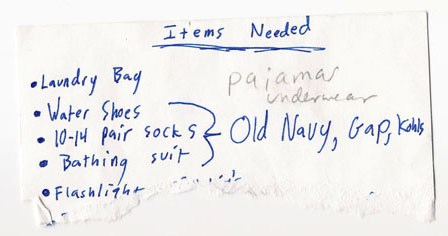 Items Needed
• Laundry Bag
pajamas
underwear
• Water Shoes
• 10-14 pair socks
• Bathing suit
Old Navy, Gap, Kohls
• Flashlight